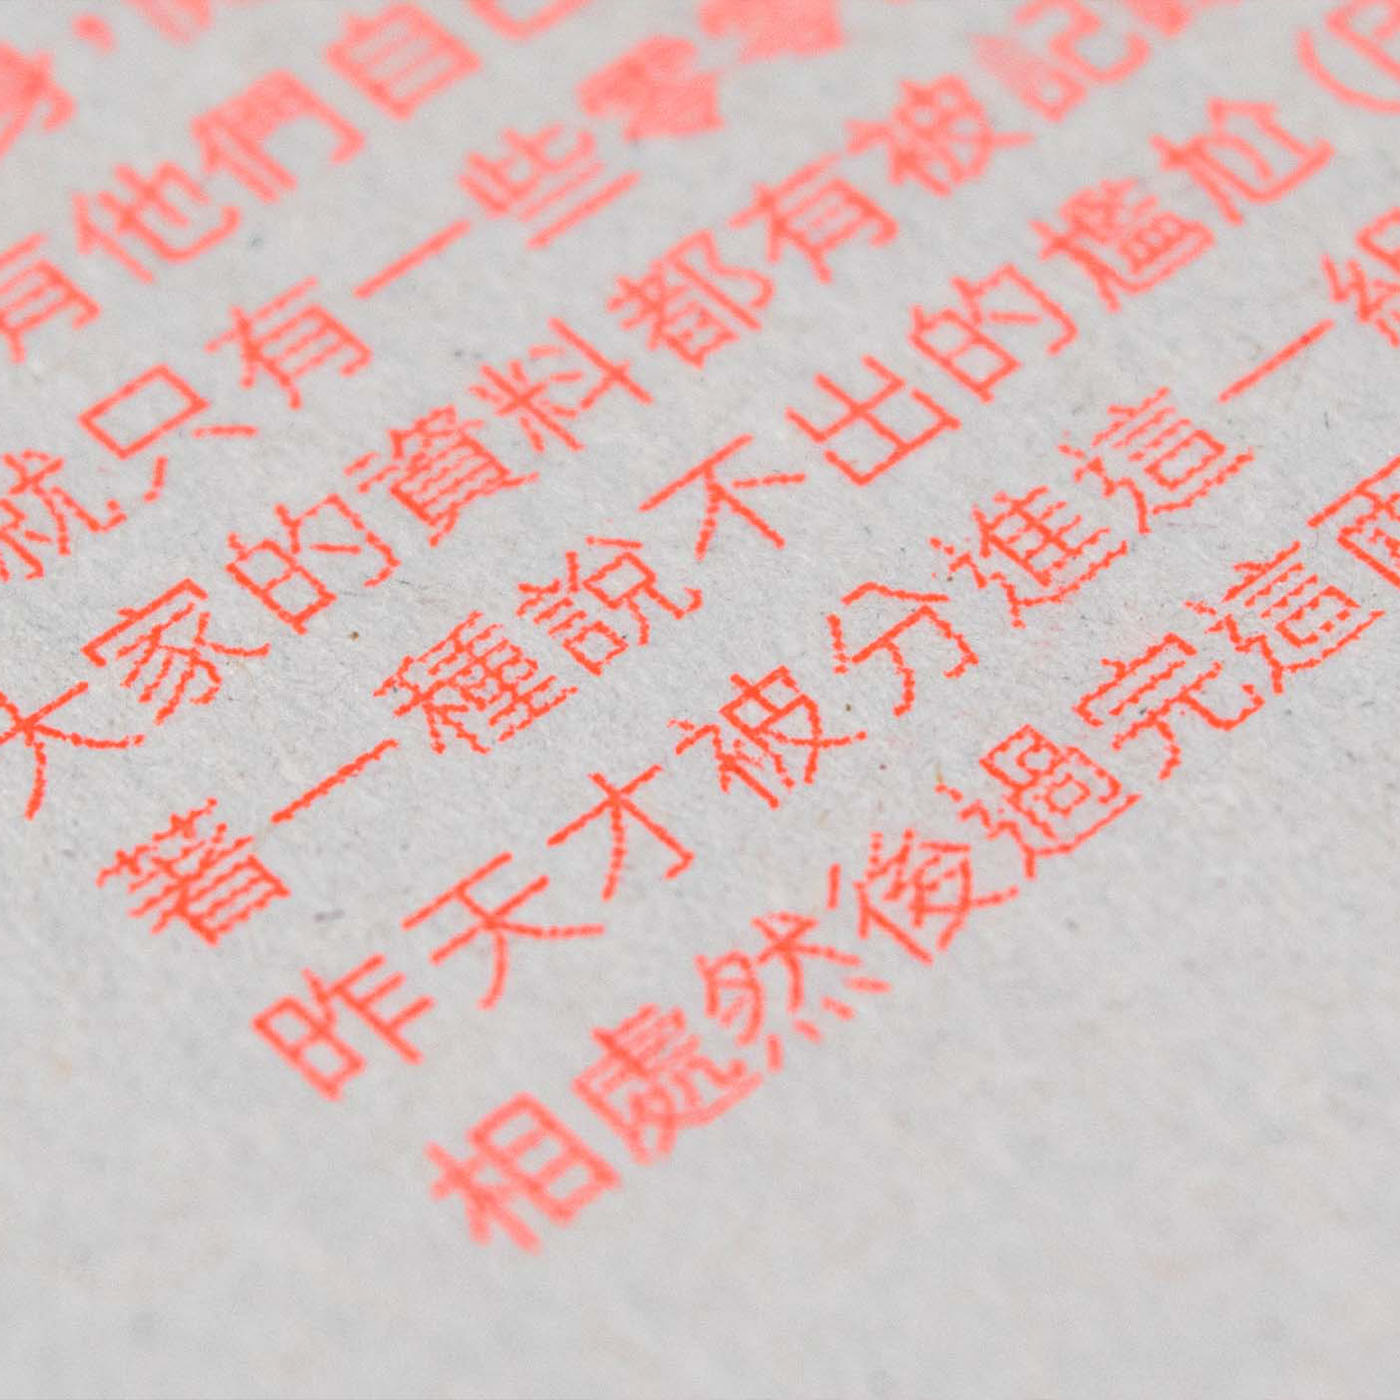 有他們自己
就只有一些零零
大家的資料都有被記
著一種說不出的尷尬（
昨天才被分進這一組
相處然後過完這兩